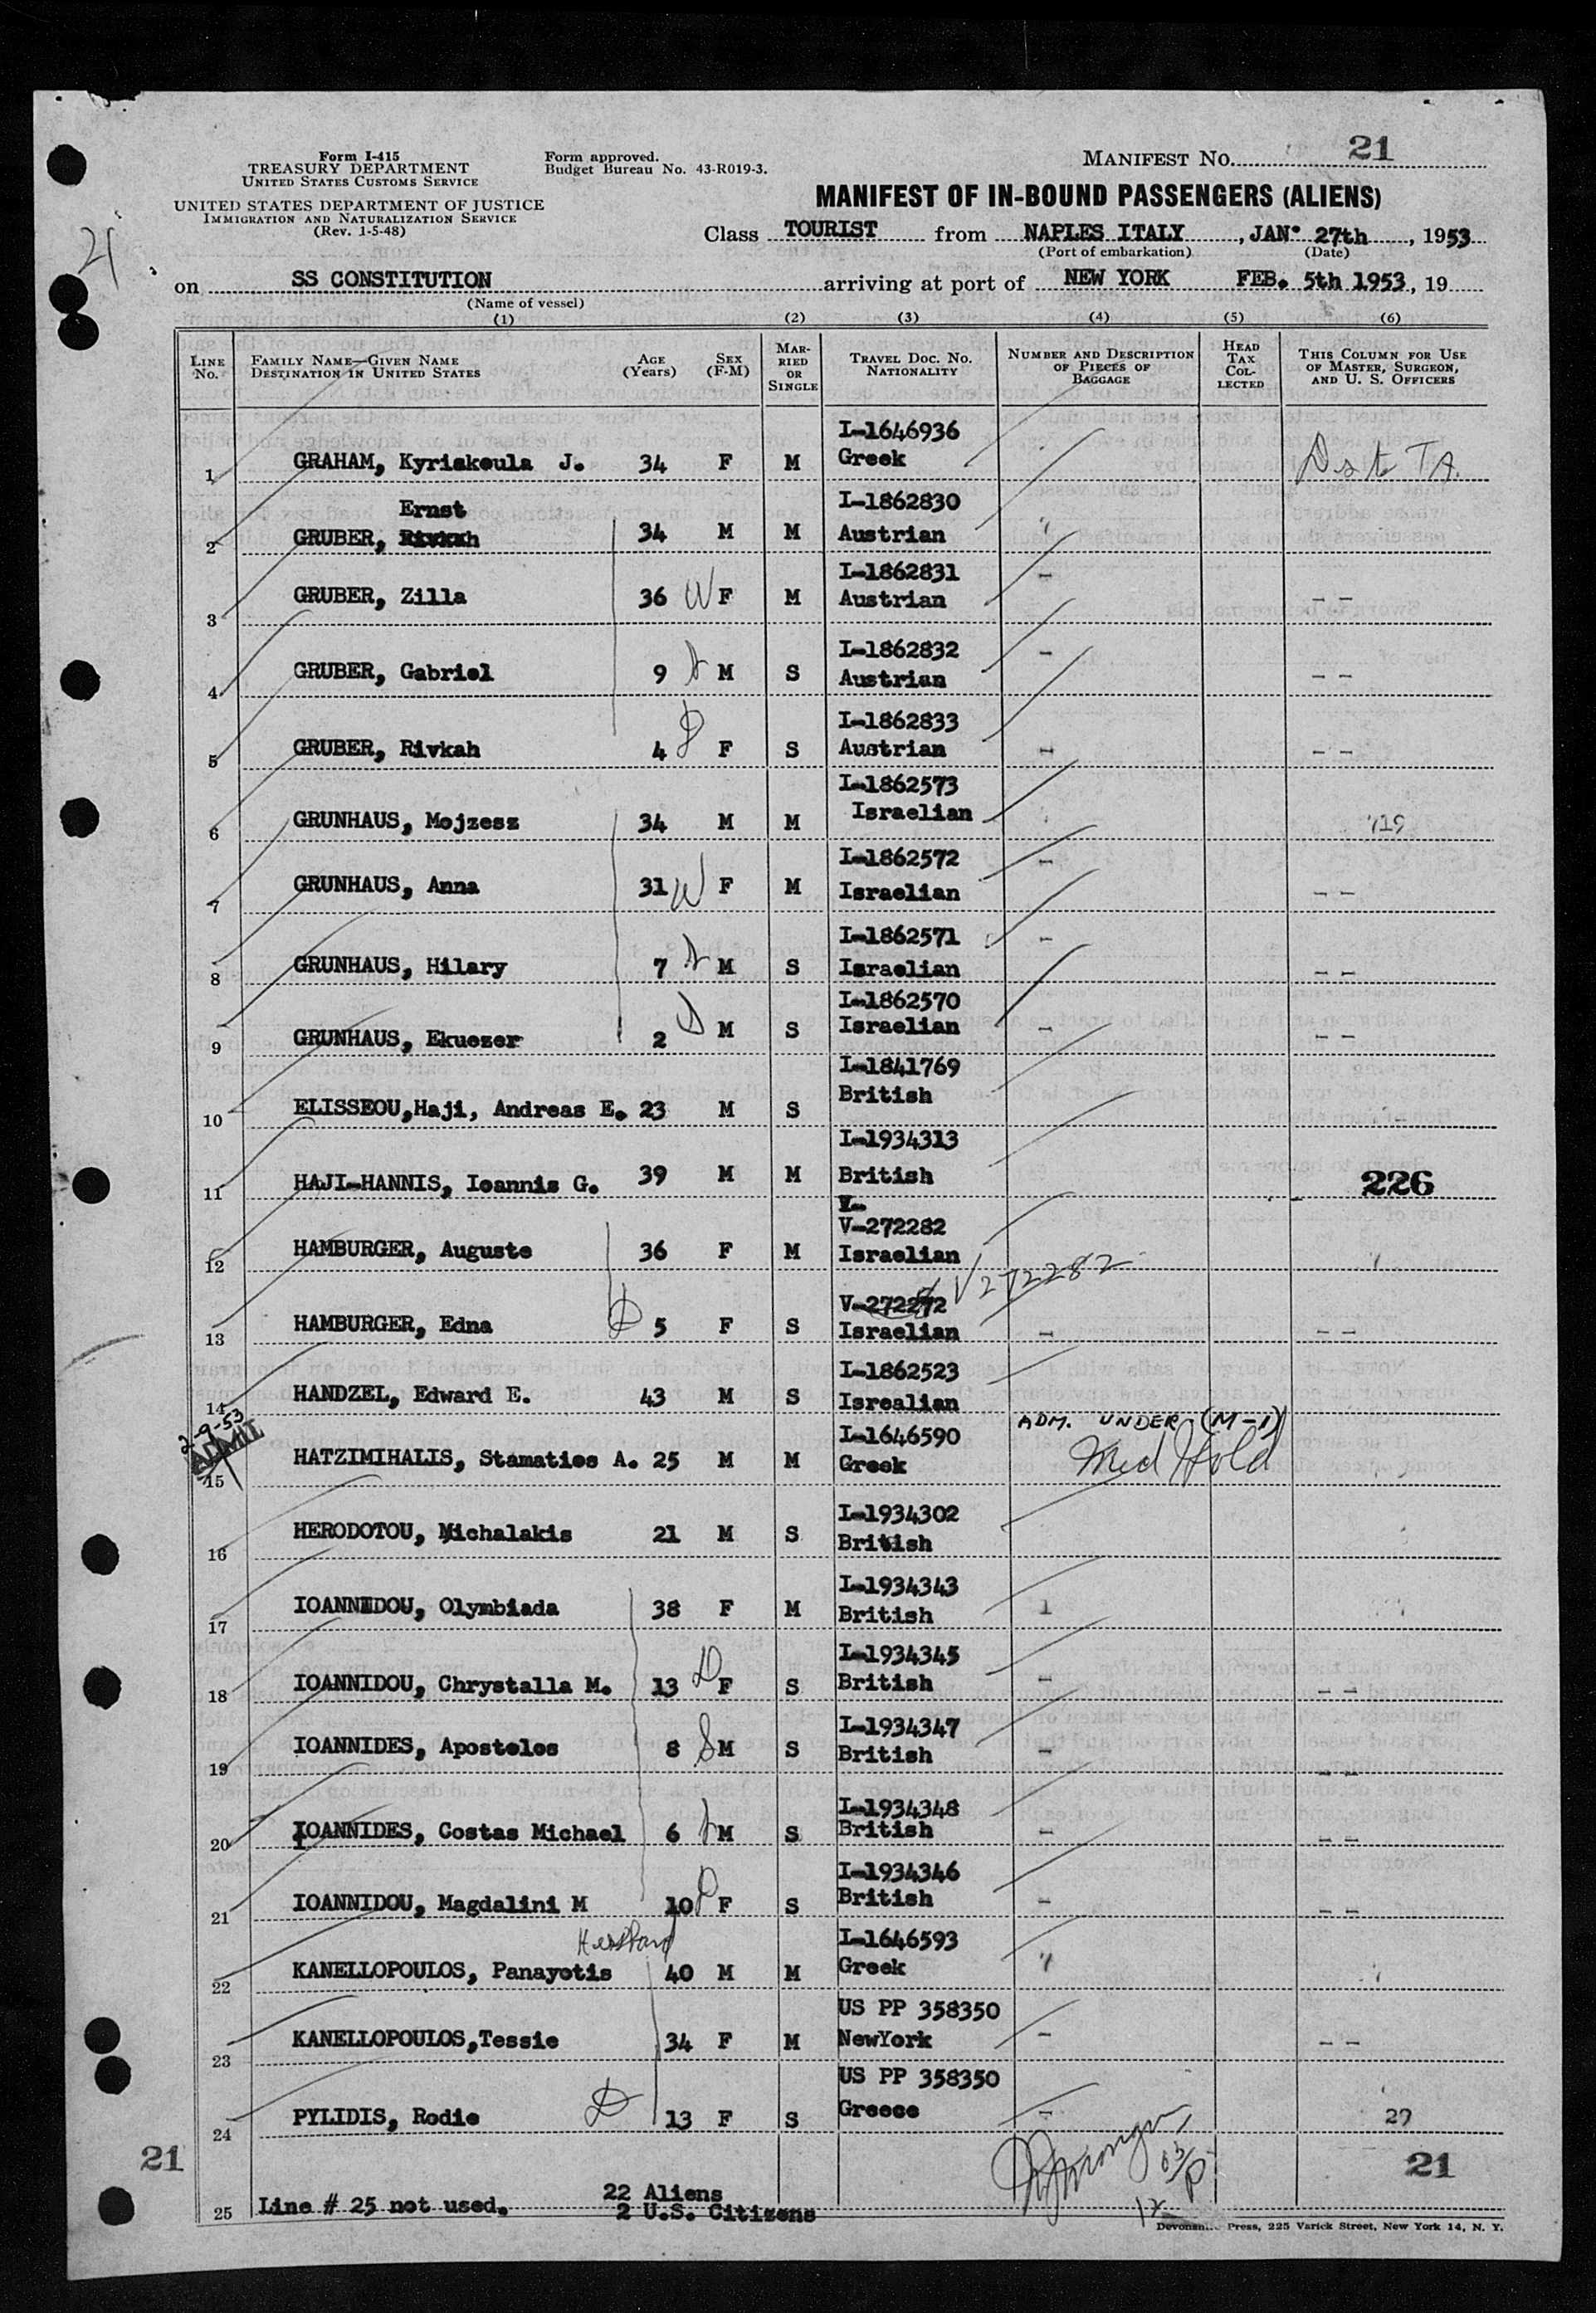 Form I-415
TREASURY DEPARTMENT
UNITED STATES CUSTOMS SERVICE
UNITED STATES DEPARTMENT OF JUSTICE
IMMIGRATION AND NATURALIZATION SERVICE
(Rev. 1-5-48)
Form approved.
Budget Bureau No. 43-R019-3.
MANIFEST NO. 21
MANIFEST OF IN-BOUND PASSENGERS (ALIENS)
Class TOURIST from NAPLES ITALY, JAN. 27th, 1953
(Port of embarkation) (Date)
21
on SS CONSTITUTION arriving at port of NEW YORK FEB. 5th 1953, 19
(Name of vessel)
(1) (2) (3) (4) (5) (6)
LINE NO. FAMILY NAME—GIVEN NAME DESTINATION IN UNITED STATES AGE (YEARS) SEX (F-M) MARRIED OR SINGLE TRAVEL DOC. NO. NATIONALITY NUMBER AND DESCRIPTION OF PIECES OF BAGGAGE HEAD TAX COLLECTED THIS COLUMN FOR USE OF MASTER, SURGEON, AND U. S. OFFICERS
1 GRAHAM, Kyriakoula J. 34 F M I-1646936 Greek
2 GRUBER, Rivkah Ernst 34 M M I-1862830 Austrian
3 GRUBER, Zilla 36 W F M I-1862831 Austrian - - -
4 GRUBER, Gabriel 9 S M S I-1862832 Austrian - - -
5 GRUBER, Rivkah 4 D F S I-1862833 Austrian - - -
6 GRUNHAUS, Mojzesz 34 M M I-1862573 Israelian
7 GRUNHAUS, Anna 31 W F M I-1862572 Israelian - - -
8 GRUNHAUS, Hilary 7 S M S I-1862571 Israelian - - -
9 GRUNHAUS, Ekuezer 2 S M S I-1862570 Israelian - - -
10 ELISSEOU,Haji, Andreas E. 23 M S I-1841769 British
11 HAJI-HANNIS, Ioannis G. 39 M M I-1934313 British 226
V-
12 HAMBURGER, Auguste 36 F M V-272282 Israelian
13 HAMBURGER, Edna D 5 F S V-272272 V272282 Israelian - - -
14 HANDZEL, Edward E. 43 M S I-1862523 Isrealian
2-9-53 ADMIT
ADM. UNDER (M-1)
15 HATZIMIHALIS, Stamatios A. 25 M M I-1646590 Greek Med Hold
16 HERODOTOU, Michalakis 21 M S I-1934302 British
17 IOANNIDOU, Olymbiada 38 F M I-1934343 British 1
18 IOANNIDOU, Chrystalla M. 13 D F S I-1934345 British - - -
19 IOANNIDES, Apostolos 8 S M S I-1934347 British - - -
20 IOANNIDES, Costas Michael 6 S M S I-1934348 British - - -
21 IOANNIDOU, Magdalini M 10 D F S I-1934346 British - - -
Husband
22 KANELLOPOULOS, Panayotis 40 M M I-1646593 Greek
23 KANELLOPOULOS,Tessie 34 F M US PP 358350 NewYork - - -
24 PYLIDIS, Rodie D 13 F S US PP 358350 Greece - 29
21 21
25 Line # 25 not used. 22 Aliens
2 U.S. Citizens
Devonshire Press, 225 Varick Street, New York 14, N. Y.